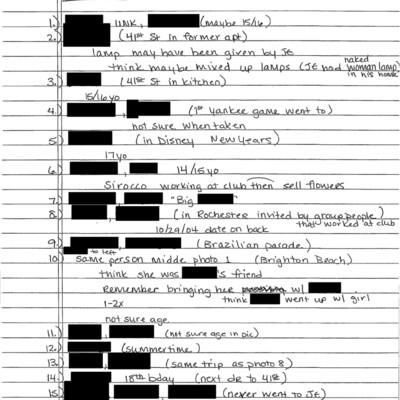 1.) UNK, (maybe 15/16)
2.) (41st St in former apt)
lamp may have been given by JE
think maybe mixed up lamps (JE had naked woman lamp in his house
3.) (41st St in kitchen)
15/16 yo
4.) , (1st Yankee game went to)
not sure when taken
5) (in Disney New Years)
17 yo
6.) , 14/15 yo
Sirocco working at club then sell flowers
7.) , "Big
8.) , (in Rochester invited by group people) that worked at club
10/29/04 date on back
9.) , (Brazilian parade)
to left
10) same person middle photo 1 (Brighton Beach)
think she was 's friend
Remember bringing her w/ .
1-2x think went up w/ girl
not sure age
11.) , (not sure age in pic)
12.) (summertime)
13.) , (same trip as photo 8)
14.) 18th bday (next dr to 41st)
15.) , (never went to JE)